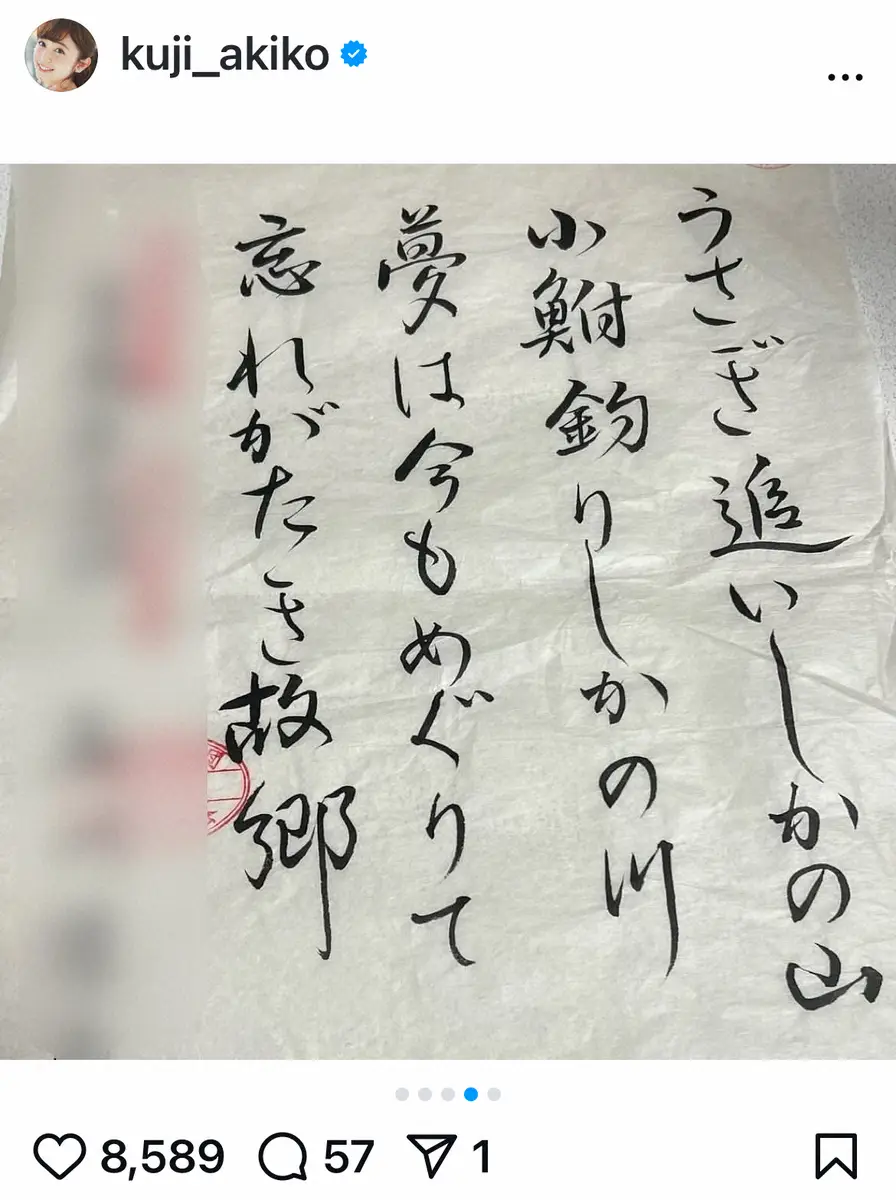 kuji_akiko
うさぎ追いしかの山
小鮒釣りしかの川
夢は今もめぐりて
忘れがたき故郷
8,589 57 1